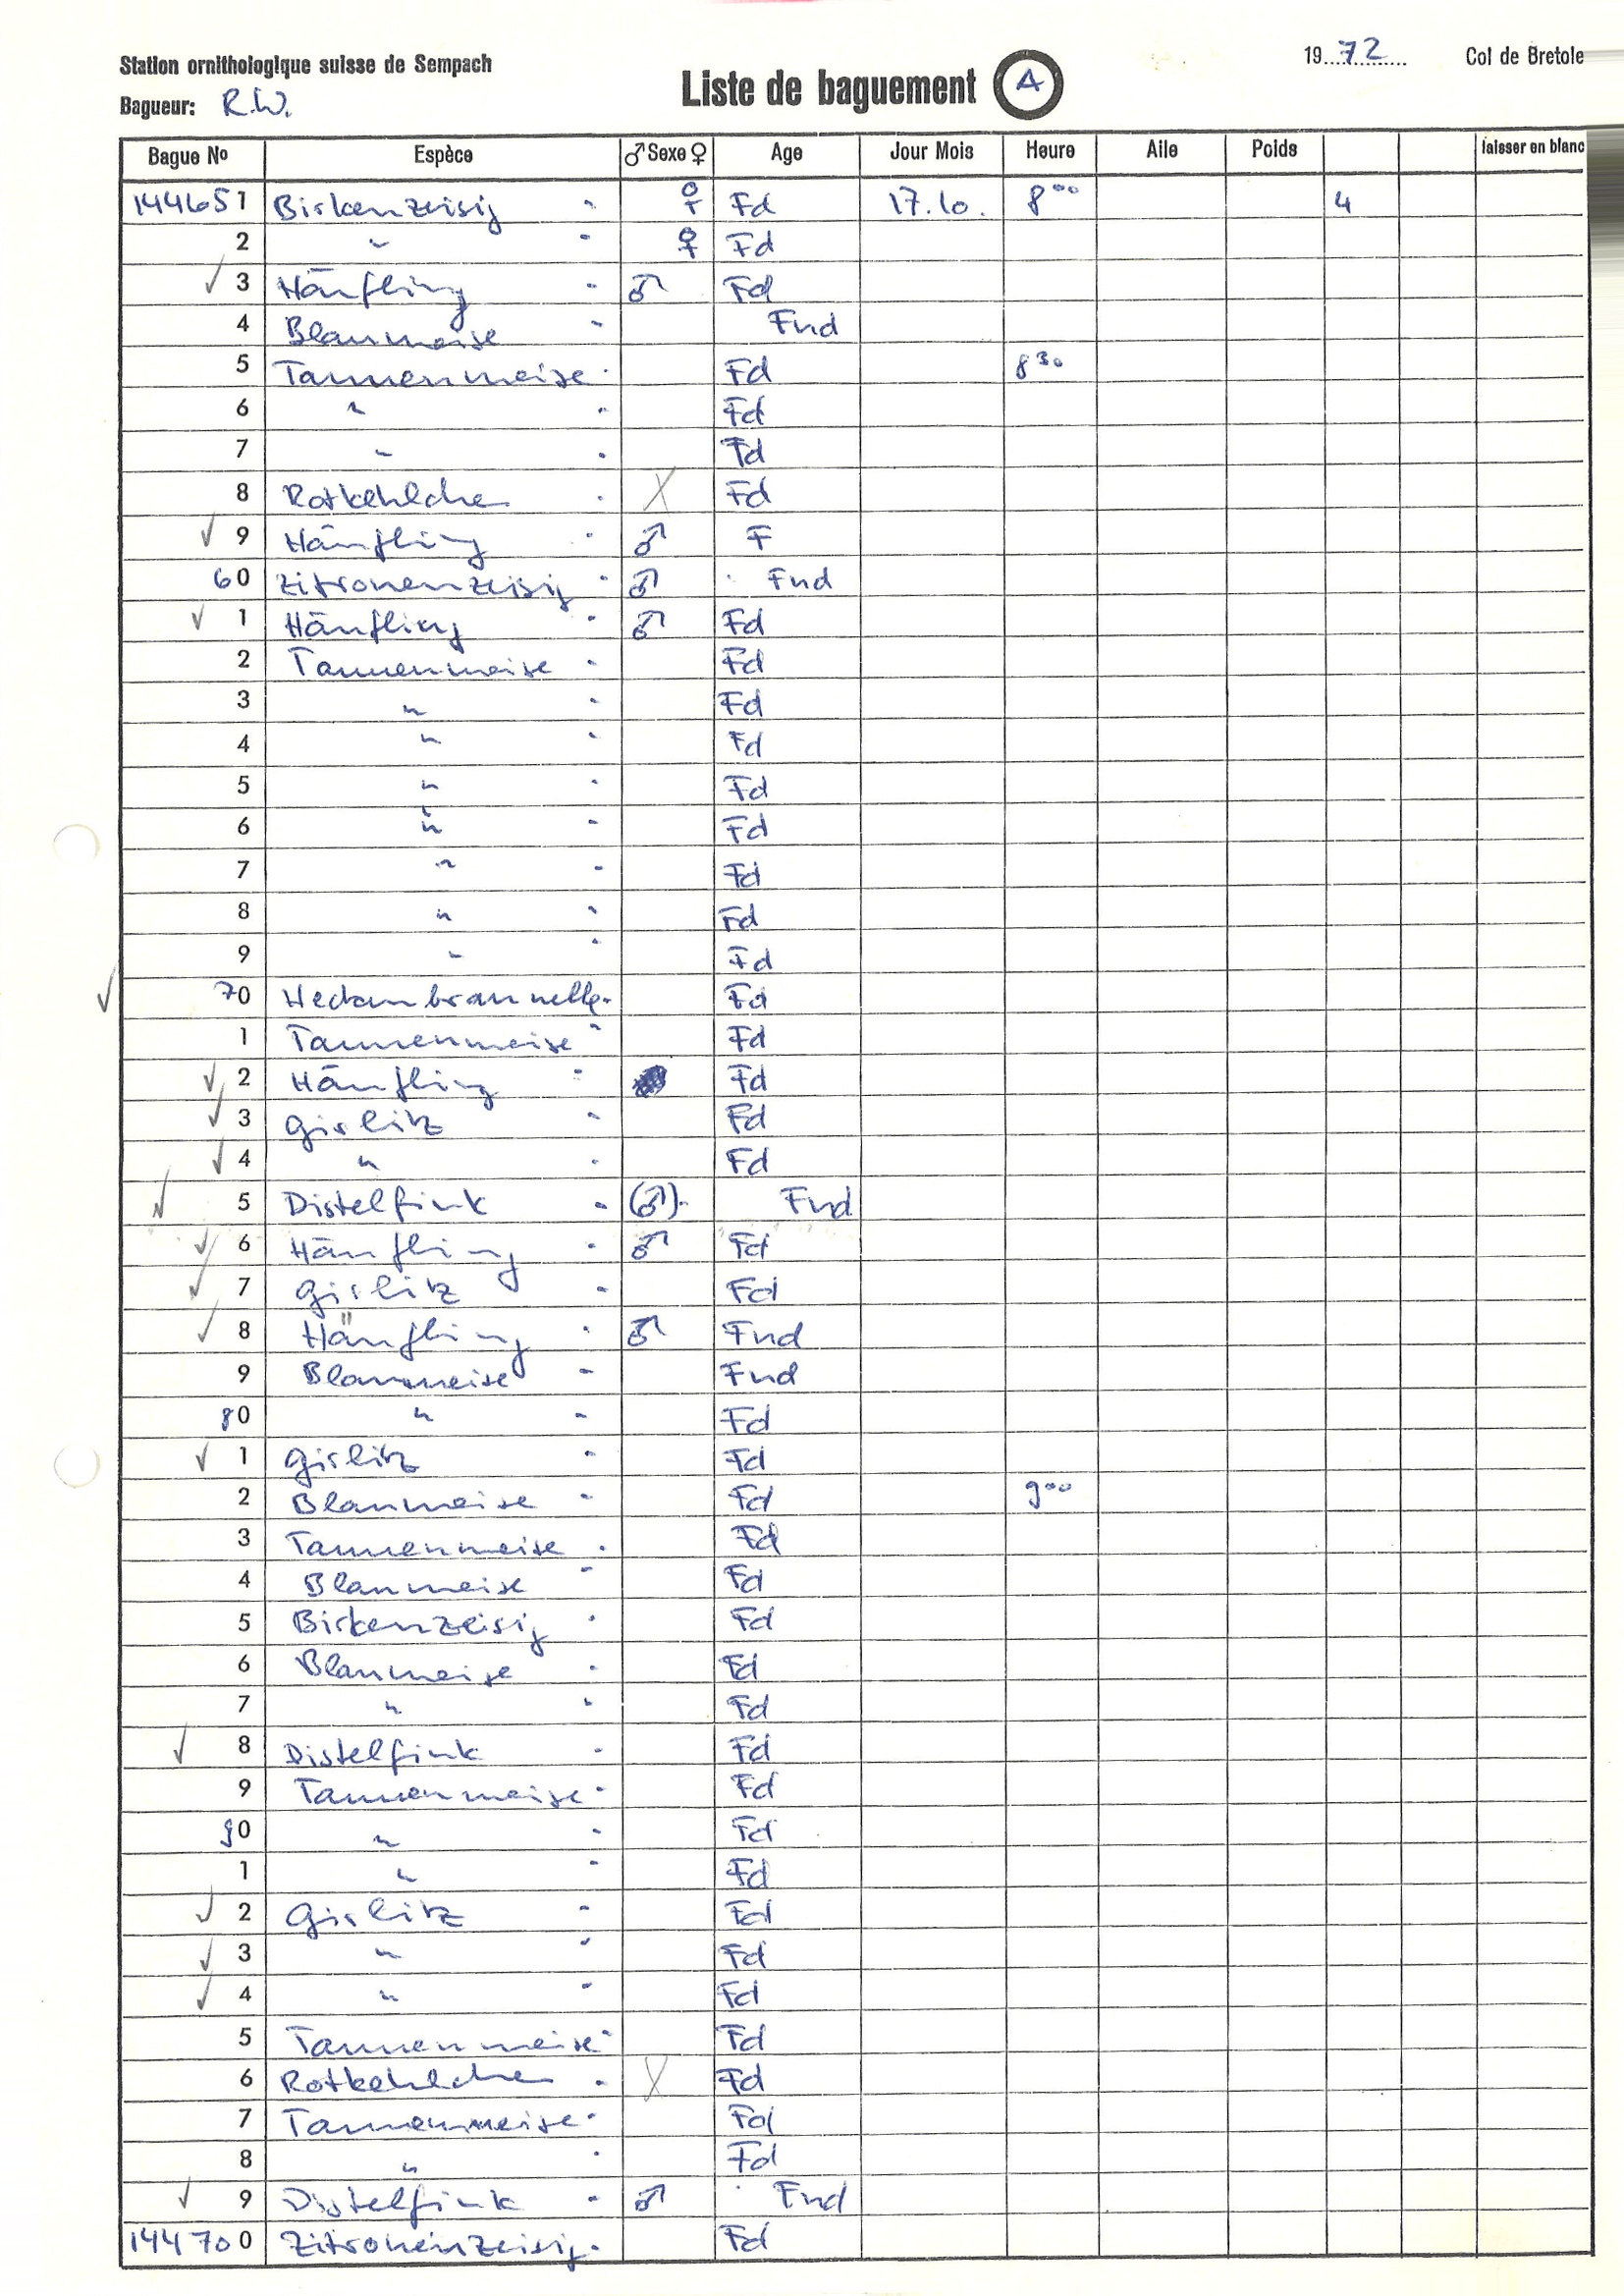 Station ornithologique suisse de Sempach
Bagueur: R.W.
Liste de baguement A
1972 Col de Bretole
Bague No Espèce ♂ Sexe ♀ Age Jour Mois Heure Aile Poids laisser en blanc
144651 Birkenzeisig - ♀ Fd 17.10. 8⁰⁰ 4
2 " - ♀ Fd
✓ 3 Hänfling - ♂ Fd
4 Blaumeise - Fnd
5 Tannenmeise - Fd 8³⁰
6 " - Fd
7 " - Fd
8 Rotkehlchen - X Fd
✓ 9 Hänfling - ♂ F
60 Zitronenzeisig - ♂ Fnd
✓ 1 Hänfling - ♂ Fd
2 Tannenmeise - Fd
3 " - Fd
4 " - Fd
5 " - Fd
6 " - Fd
7 " - Fd
8 " - Fd
9 " - Fd
✓ 70 Heckenbraunelle - Fd
1 Tannenmeise - Fd
✓ 2 Hänfling - Fd
✓ 3 Girlitz - Fd
✓ 4 " - Fd
✓ 5 Distelfink - (♂). Fnd
✓ 6 Hänfling - ♂ Fd
✓ 7 Girlitz - Fd
✓ 8 Hänfling - ♂ Fnd
9 Blaumeise - Fnd
80 " - Fd
✓ 1 Girlitz - Fd
2 Blaumeise - Fd 9⁰⁰
3 Tannenmeise - Fd
4 Blaumeise - Fd
5 Birkenzeisig - Fd
6 Blaumeise - Fd
7 " - Fd
✓ 8 Distelfink - Fd
9 Tannenmeise - Fd
90 " - Fd
1 " - Fd
✓ 2 Girlitz - Fd
✓ 3 " - Fd
✓ 4 " - Fd
5 Tannenmeise - Fd
6 Rotkehlchen - X Fd
7 Tannenmeise - Fd
8 " - Fd
✓ 9 Distelfink - ♂ Fnd
144700 Zitronenzeisig - Fd